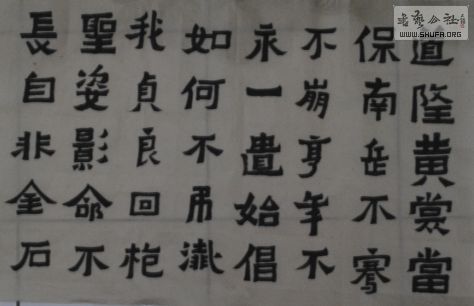 道隆黄裳當
保南岳不騫
不崩享年不
永一遺始倡
如何不弔殲
我貞良回枹
聖姿影命不
長自非金石
书艺公社
WWW.SHUFA.ORG